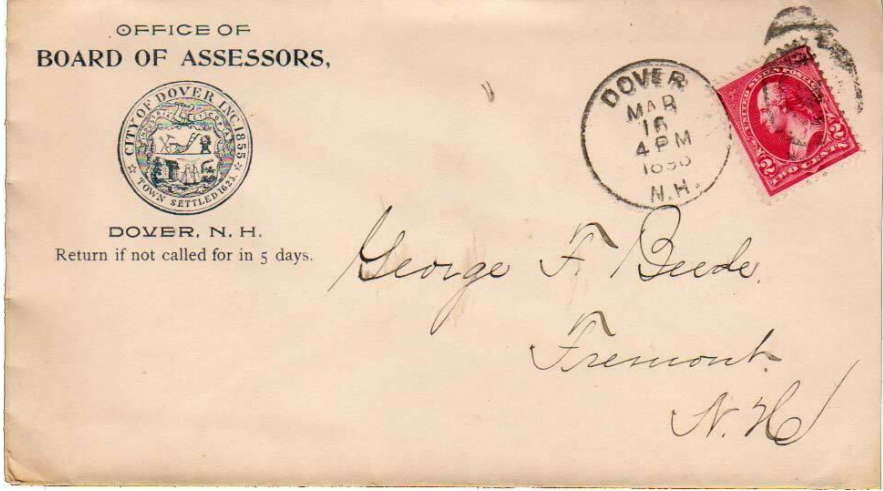 OFFICE OF
BOARD OF ASSESSORS,
CITY OF DOVER INC. 1855
TOWN SETTLED 1623.
DOVER, N. H.
Return if not called for in 5 days.
DOVER
MAR
16
4 PM
N.H.
UNITED STATES POSTAGE
2 2
TWO CENTS
George F. Beede.
Fremont.
N. H